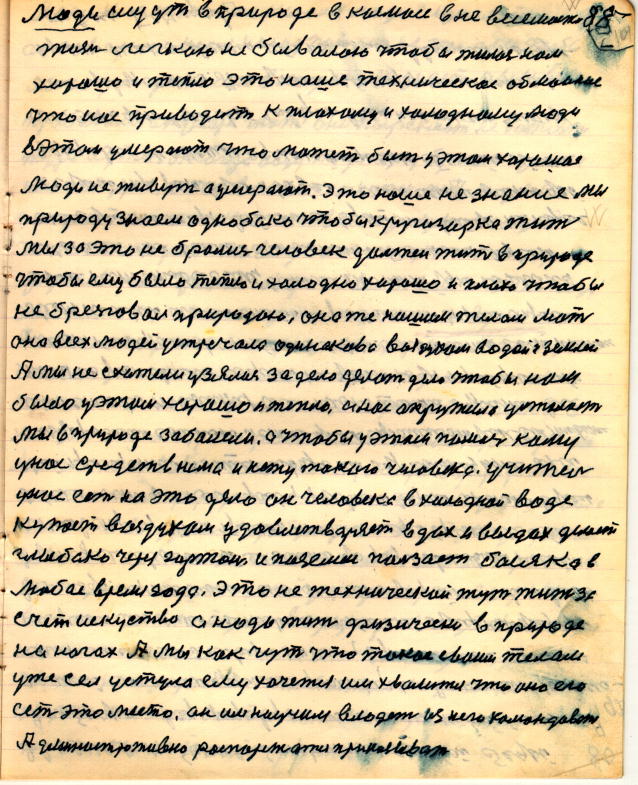 Люди ищут в природе в космосе вне всеможно 88
тази легкою не бывалою чтобы жилоя нам
хорошо и тепло это наше техническое обмоание
что нас приводить к плохому и холодному люди
в этом умерают что может быт у этом харошае
люди не живут а умерают. Это наше не знание мы
природу знаем однобако чтобы кругазарка жит
мы за это не бралис человек должен жит в природе
чтобы ему было тепло и холодно хорошо и плохо чтобы
не брезговал природаю, она же нашем телам мат
она всех людей устречала одинаково воздухом водой и землей
А мы не схатели узялис за дело делат дело чтобы нам
было у этом харошо и тепло, а нас акружила усталаст
мы в природе забалели. а чтобы у этом памоч каму
у нас средств нема и нету такого человека. учител
у нас ест на это дело он человека в халодной воде
купает воздухам удовлетваряет вдох и выдах делает
глыбако через гартан и паземли ползает басяка в
любое время года. Это не технический тут жит за
счет искуства а надо жит физически в природе
на ногах А мы как чут что такое своим телам
уже сел уступа ему хочется им хвалится что она его
ест это место. он им научим владет из него камандават
Административно распаряжатся приказыват